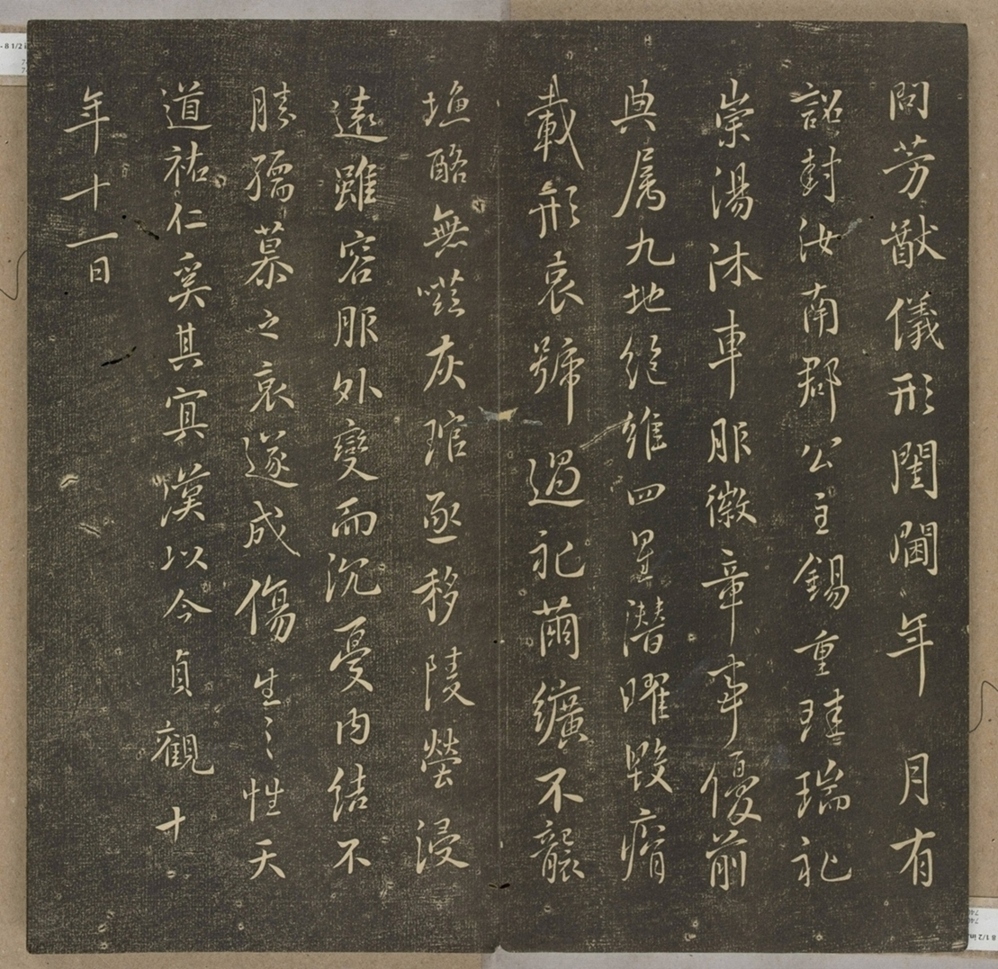 問芳猷儀形閨閫年月有
詔封汝南郡公主錫重珪瑞礼
崇湯沐車服徽章事優前
典属九地絶維四星潛曜毀瘠
載形哀號過礼繭纊不襲
塩酪無嗞灰琯亟移陵塋浸
遠雖容服外變而沉憂内結不
勝孺慕之哀遂成傷生之性天
道祐仁奚其冥漠以今貞觀十
年十一日